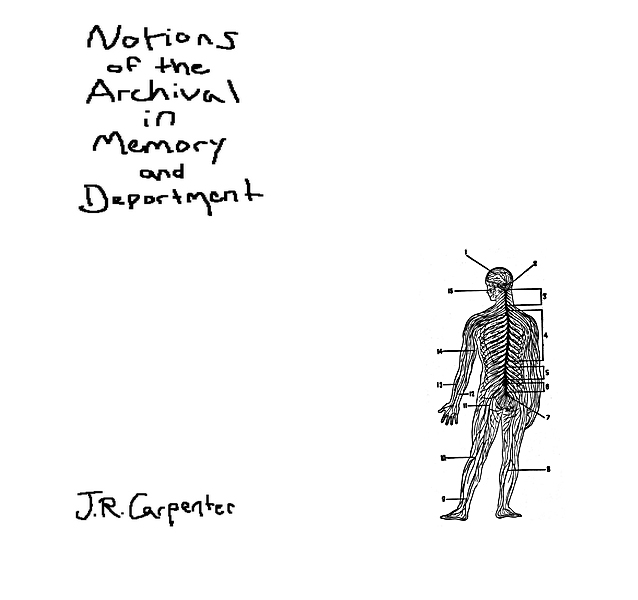 Notions
of the
Archival
in
Memory
and
Deportment
1
2
15
3
4
14
5
13
6
12
11
7
10
8
9
J.R. Carpenter